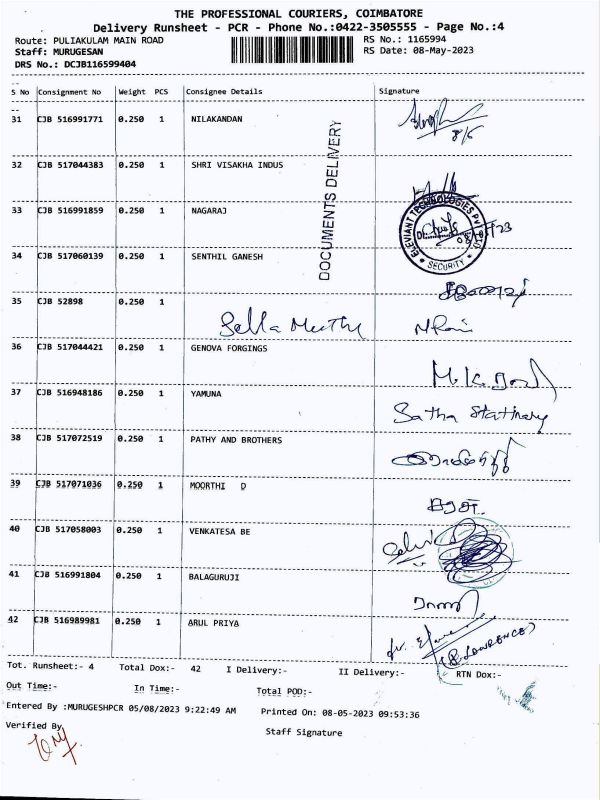 THE PROFESSIONAL COURIERS, COIMBATORE
Delivery Runsheet - PCR - Phone No.:0422-3505555 - Page No.:4
Route: PULIAKULAM MAIN ROAD RS No.: 1165994
Staff: MURUGESAN RS Date: 08-May-2023
DRS No.: DCJB116599404
S No Consignment No Weight PCS Consignee Details Signature
31 CJB 516991771 0.250 1 NILAKANDAN
8/5
32 CJB 517044383 0.250 1 SHRI VISAKHA INDUS
DOCUMENTS DELIVERY
33 CJB 516991859 0.250 1 NAGARAJ
ELEVIANT TECHNOLOGIES PVT LTD. SECURITY
34 CJB 517060139 0.250 1 SENTHIL GANESH
35 CJB 52898 0.250 1 Sella Muthu
36 CJB 517044421 0.250 1 GENOVA FORGINGS
37 CJB 516948186 0.250 1 YAMUNA Satha Stationary
38 CJB 517072519 0.250 1 PATHY AND BROTHERS
39 CJB 517071036 0.250 1 MOORTHI D
40 CJB 517058003 0.250 1 VENKATESA BE
41 CJB 516991804 0.250 1 BALAGURUJI
42 CJB 516989981 0.250 1 ARUL PRIYA
LAWRENCE)
Tot. Runsheet:- 4 Total Dox:- 42 I Delivery:- II Delivery:- RTN Dox:-
Out Time:- In Time:- Total POD:-
Entered By :MURUGESHPCR 05/08/2023 9:22:49 AM Printed On: 08-05-2023 09:53:36
Verified By Staff Signature